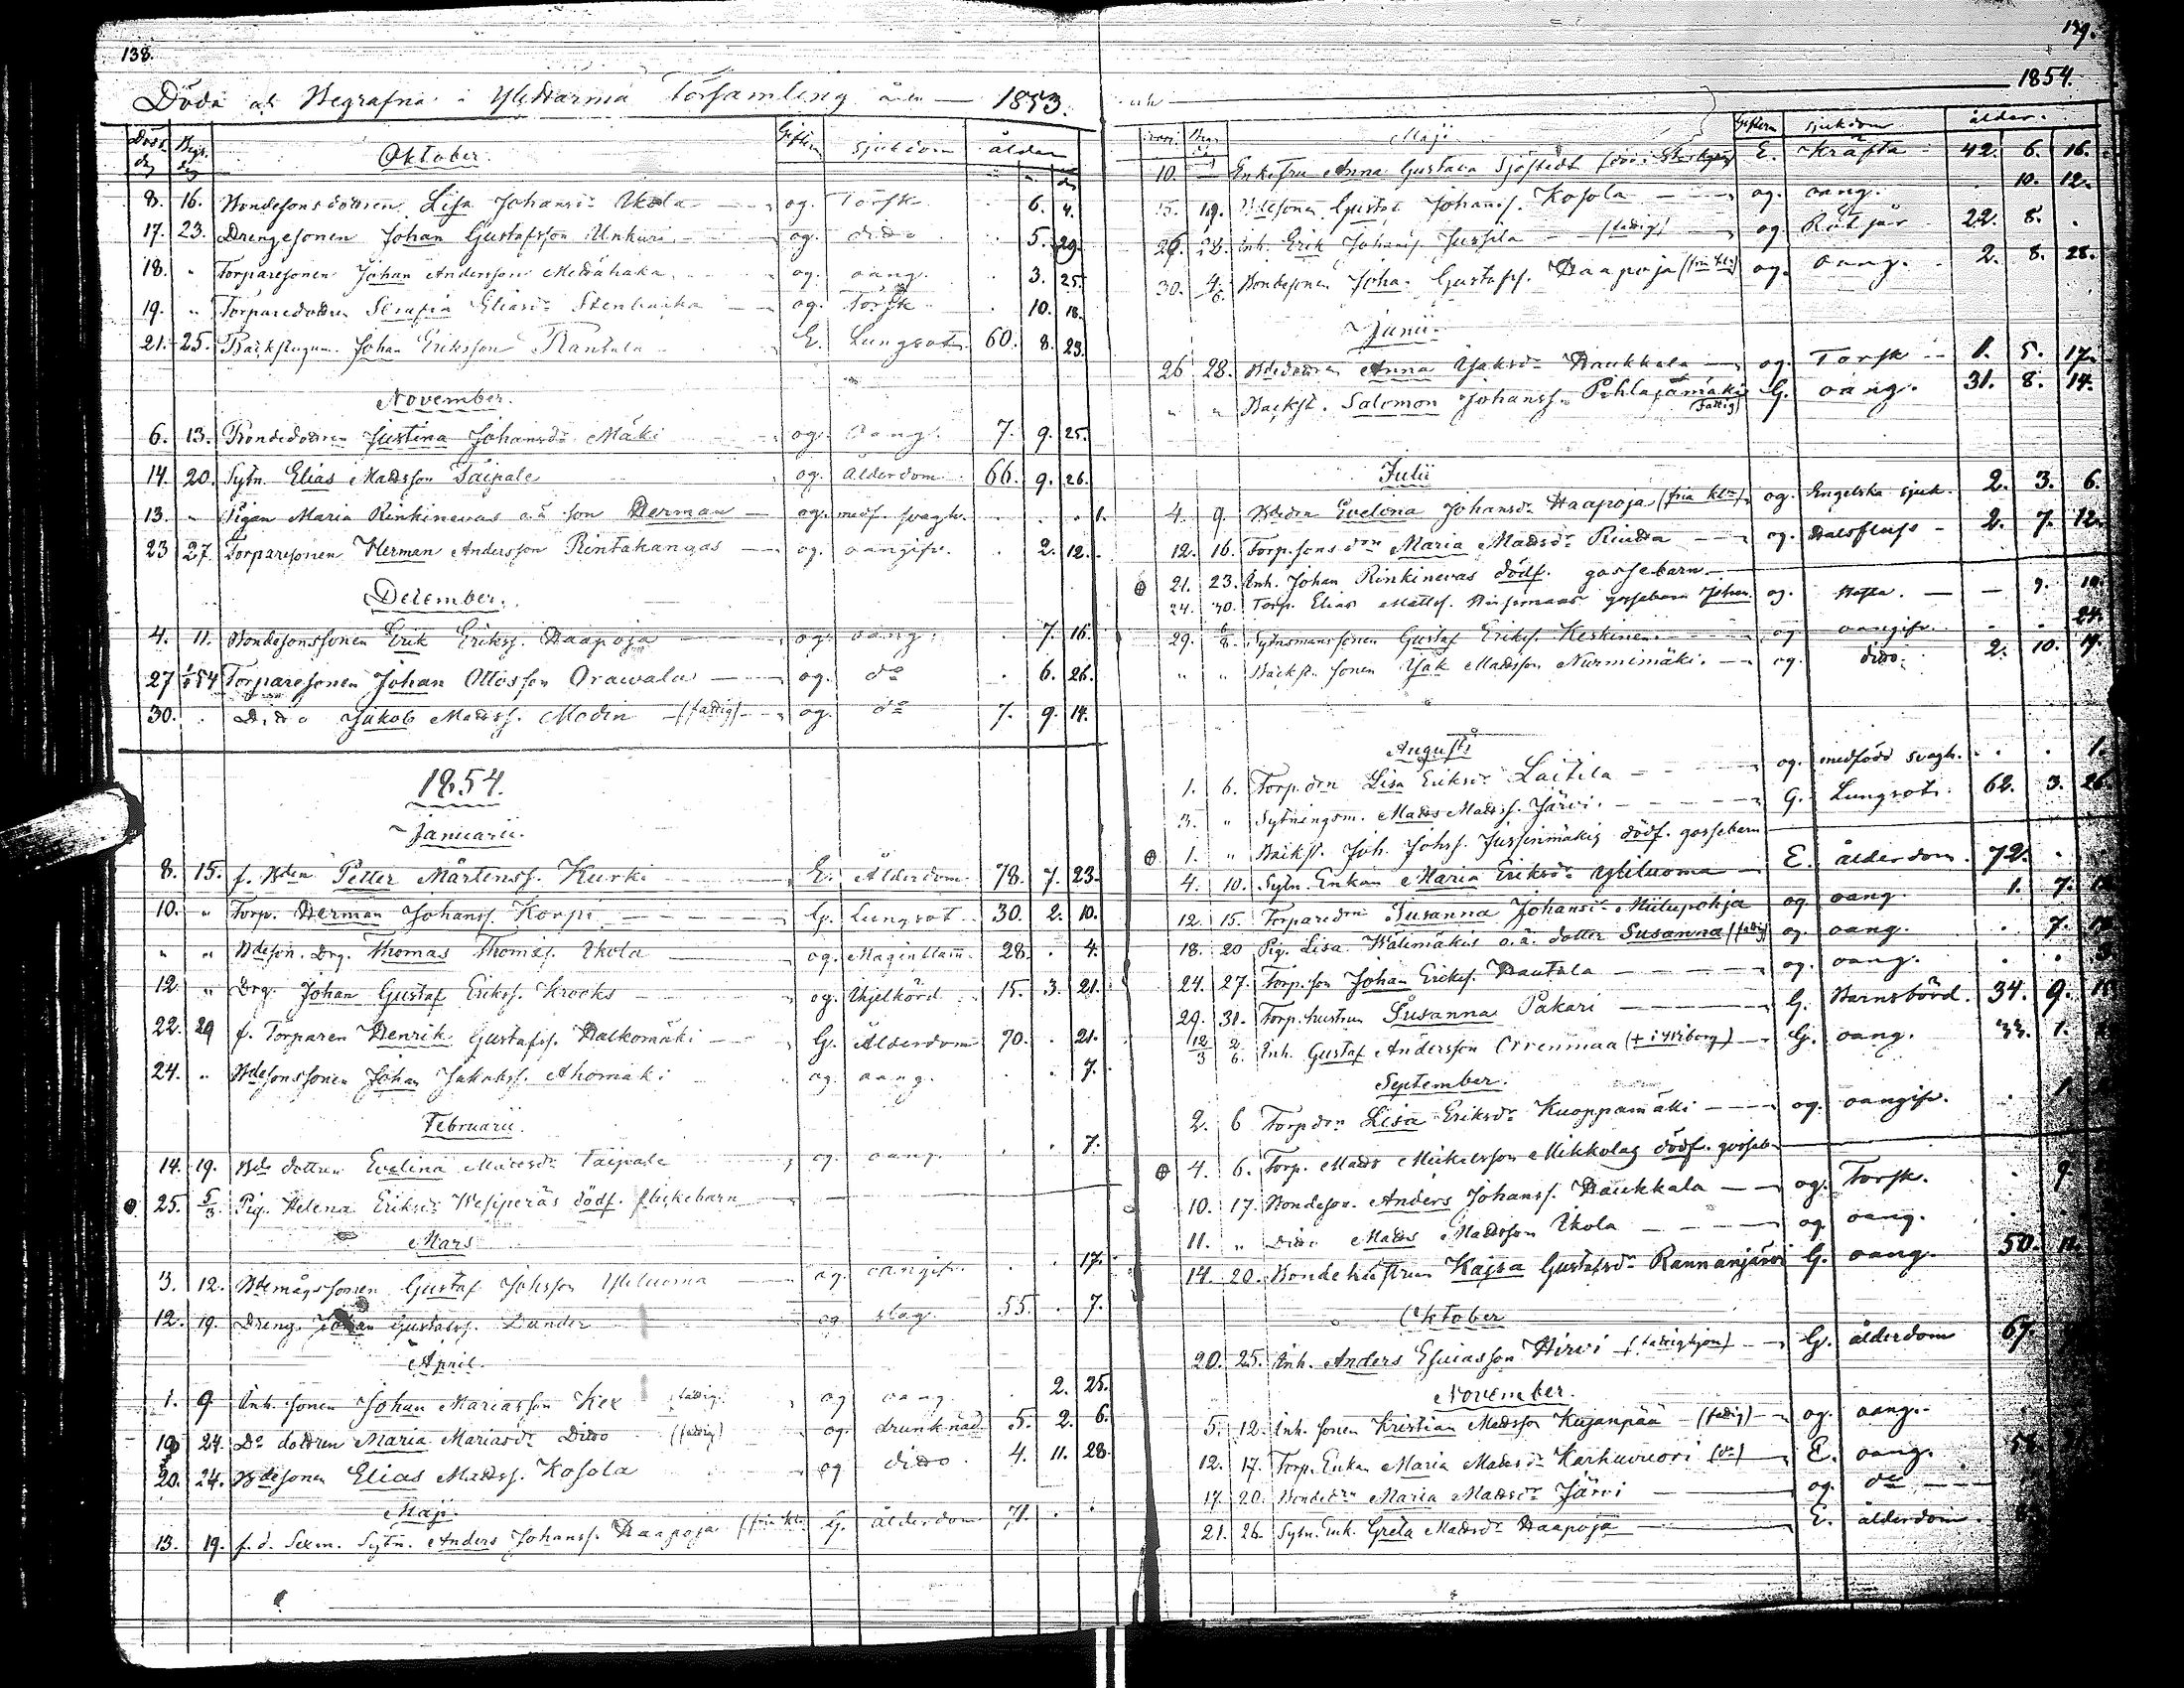 138.
Döda och Begrafna i Ylihärmä Församling åren — 1853.
Oktober. sjukdom ålder
8. 16. Bondesonsdottren Lisa Johansdr Ikola og. Torsk 6. 4.
17. 23. Drengesonen Johan Gustafsson Unkuri og. dido 5. 29.
18. " Torparesonen Johan Andersson og. oang. 3. 25.
19. " Torparedottren Serafia Eliasdr og. Torsk 10. 18.
21. 25. Johan Eriksson Rantala E. Lungsot 60. 8. 23.
November.
6. 13. Bondedottren Justina Johansdr Mäki og. oang. 7. 9. 25.
14. 20. Sytn. Elias Mattsson Taipale og. ålderdom 66. 9. 26.
13. " Pigan Maria Rinkinevas o.ä. son Herman og. medf. svagh. . . 1.
23 27. Torparesonen Herman Andersson Rintakangas og. oangifv. . 2. 12.
December.
4. 11. Bondesonssonen Erik Erikss. Haapoja og. oang. . 7. 16.
27 1/1 54 Torparesonen Johan Ottosson Orawala og. do . 6. 26.
30. . Dido Jakob Matss. Modin (fattig) og. do 7. 9. 14.
1854.
Januarii.
8. 15. f. Bden Petter Mårtenss. Kurki E. Ålderdom 78. 7. 23.
10. " Torp. Herman Johanss. Korpi G. Lungsot 30. 2. 10.
" " Bdeson. Drg. Thomas Thomass. Ikola og. Maginflam. 28. . 4.
12 " Drg. Johan Gustaf Erikss. Krooks og. Ihjelkörd 15. 3. 21.
22. 29 f. Torparen Henrik Gustafss. Halkomäki G. Ålderdom 70. . 21.
24. " Bdesonssonen Johan Jakobss. Ahomäki og. oang. . . 7.
Februarii.
14. 19. Bde dottren Evelina Mattsdr Taipale og. oang. . . 7.
25. 5/3. Pig. Helena Eriksdr Wesiperäs dödf. flickebarn
Mars
3. 12. Bdemågssonen Gustaf Johsson Ylituoma og. oangifv. . . 17.
12. 19. Dreng. Johan Gustafss. Dander og slag. 55. . 7.
April.
1. 9 Inh. sonen Johan Mariasson Kex fattig. og oang . 2. 25.
19 24. Do dottren Maria Mariasdr Dido (fattig) og. drunknad 5. 2. 6.
20. 24. Bdesonen Elias Matss. Kosola og dido. 4. 11. 28.
Maji.
13. 19. f. d. Sexm. Sytn. Anders Johanss. Haapoja G. ålderdom 71. . .
139.
och 1854.
Maji sjukdom ålder.
10. — Enkefru Anna Gustava Sjöstedt E. Kräfta 42. 6. 16.
15. 19. Bdesonen Gustaf Johanss. Kosola og. oang. . 10. 12.
26. 28. Inh. Erik Johanss. Jussila (fattig) og Rötfär 22. 8. .
30. 4/6. Bondesonen Joha. Gustafss. Haapoja og. oang. 2. 8. 28.
Junii.
26 28. Anna Isaksdr Haukkala og. Torsk 1. 5. 17.
" " Backst. Salomon Johanss. Pihlajamäki G. oang. 31. 8. 14.
Fattig)
Julii
4. 9. Evelina Johansdr Haapoja og. Engelska sjuk. 2. 3. 6.
12. 16. Torp.sons drn Maria Mattsdr og. Halsfluss 2. 7. 12.
21. 23. Inh. Johan Rinkinevas dödf. gossebarn
24. 30. Torp. Elias Mattss. gossebarn Johan og. — 9. 10.
29. 6/8. Sytnsmanssonen Gustaf Erikss. Keskinen og oangifv. . . 24.
" " Backst. sonen Isak Mattsson Nurmimäki. og. dido. 2. 10. 19.
Augusti
1. 6. Torp.drn Lisa Eriksdr Laitila og. medfödd svagh. . . 1.
3. " Sytningsm. Matts Matss. Järvi. G. Lungsot. 62. 3. 26.
1. " Backst. Joh. Johss. Jussinmäkis dödf. gossebarn
4. 10. Sytn. Enkan Maria Eriksdr Ylituoma E. ålderdom. 72.
12. 15. Torparedrn Susanna Johansdr Niilupohja og oang. 1. 7.
18. 20 Pig. Lisa Wälimäkis o.ä. dotter Susanna (fattig) og. oang. . 7.
24. 27. Torp. son Johan Erikss. Hautala og. oang. . .
29. 31. Torp. hustrun Susanna Pakari G. Barnsbörd. 34. 9.
12/3 2/6. Inh. Gustaf Andersson Orrenmaa (+ i Wiborg) G. oang. 33. 1.
September.
2. 6 Torpdrn Lisa Eriksdr Kuoppamäki og. oangifv. . 1.
4. 6. Torp. Matts Mickelsson Mikkolas dödf. gosseb.
10. 17. Bondeson. Anders Johanss. Haukkala og. Torsk. . 9.
11. " Dido Matts Mattsson Ikola og oang.
14. 20. Bondehustrun Kajsa Gustafsdr Rannanjärvi G. oang. 50.
Oktober
20. 25. Inh. Anders Esaiasson Hirvi (fattighjon) G. ålderdom 67.
November.
5. 12. Inh. sonen Kristian Mattsson Kujanpää (fattig) og. oang.
12. 17. Torp. Enkan Maria Mattsdr Karhuvuori (do) E. oang.
17. 20. Bondedrn Maria Mattsdr Järvi og. do
21. 26. Sytn. Enk. Greta Mattsdr Haapoja E. ålderdom.